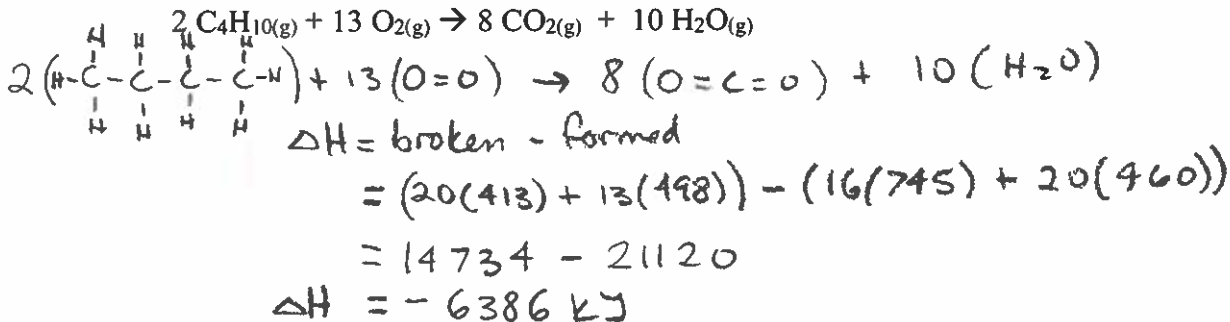 2 C4H10(g) + 13 O2(g) → 8 CO2(g) + 10 H2O(g)
H H H H
2 (H-C-C-C-C-H) + 13 (O=O) → 8 (O=C=O) + 10 (H2O)
H H H H
ΔH = broken - formed
= (20(413) + 13(498)) - (16(745) + 20(460))
= 14734 - 21120
ΔH = -6386 kJ